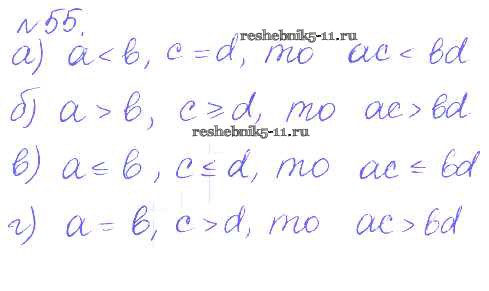 №55.
reshebnik5-11.ru
а) a < b, c = d, то ac < bd
б) a > b, c ≥ d, то ac > bd
reshebnik5-11.ru
в) a ≤ b, c ≤ d, то ac ≤ bd
г) a = b, c > d, то ac > bd